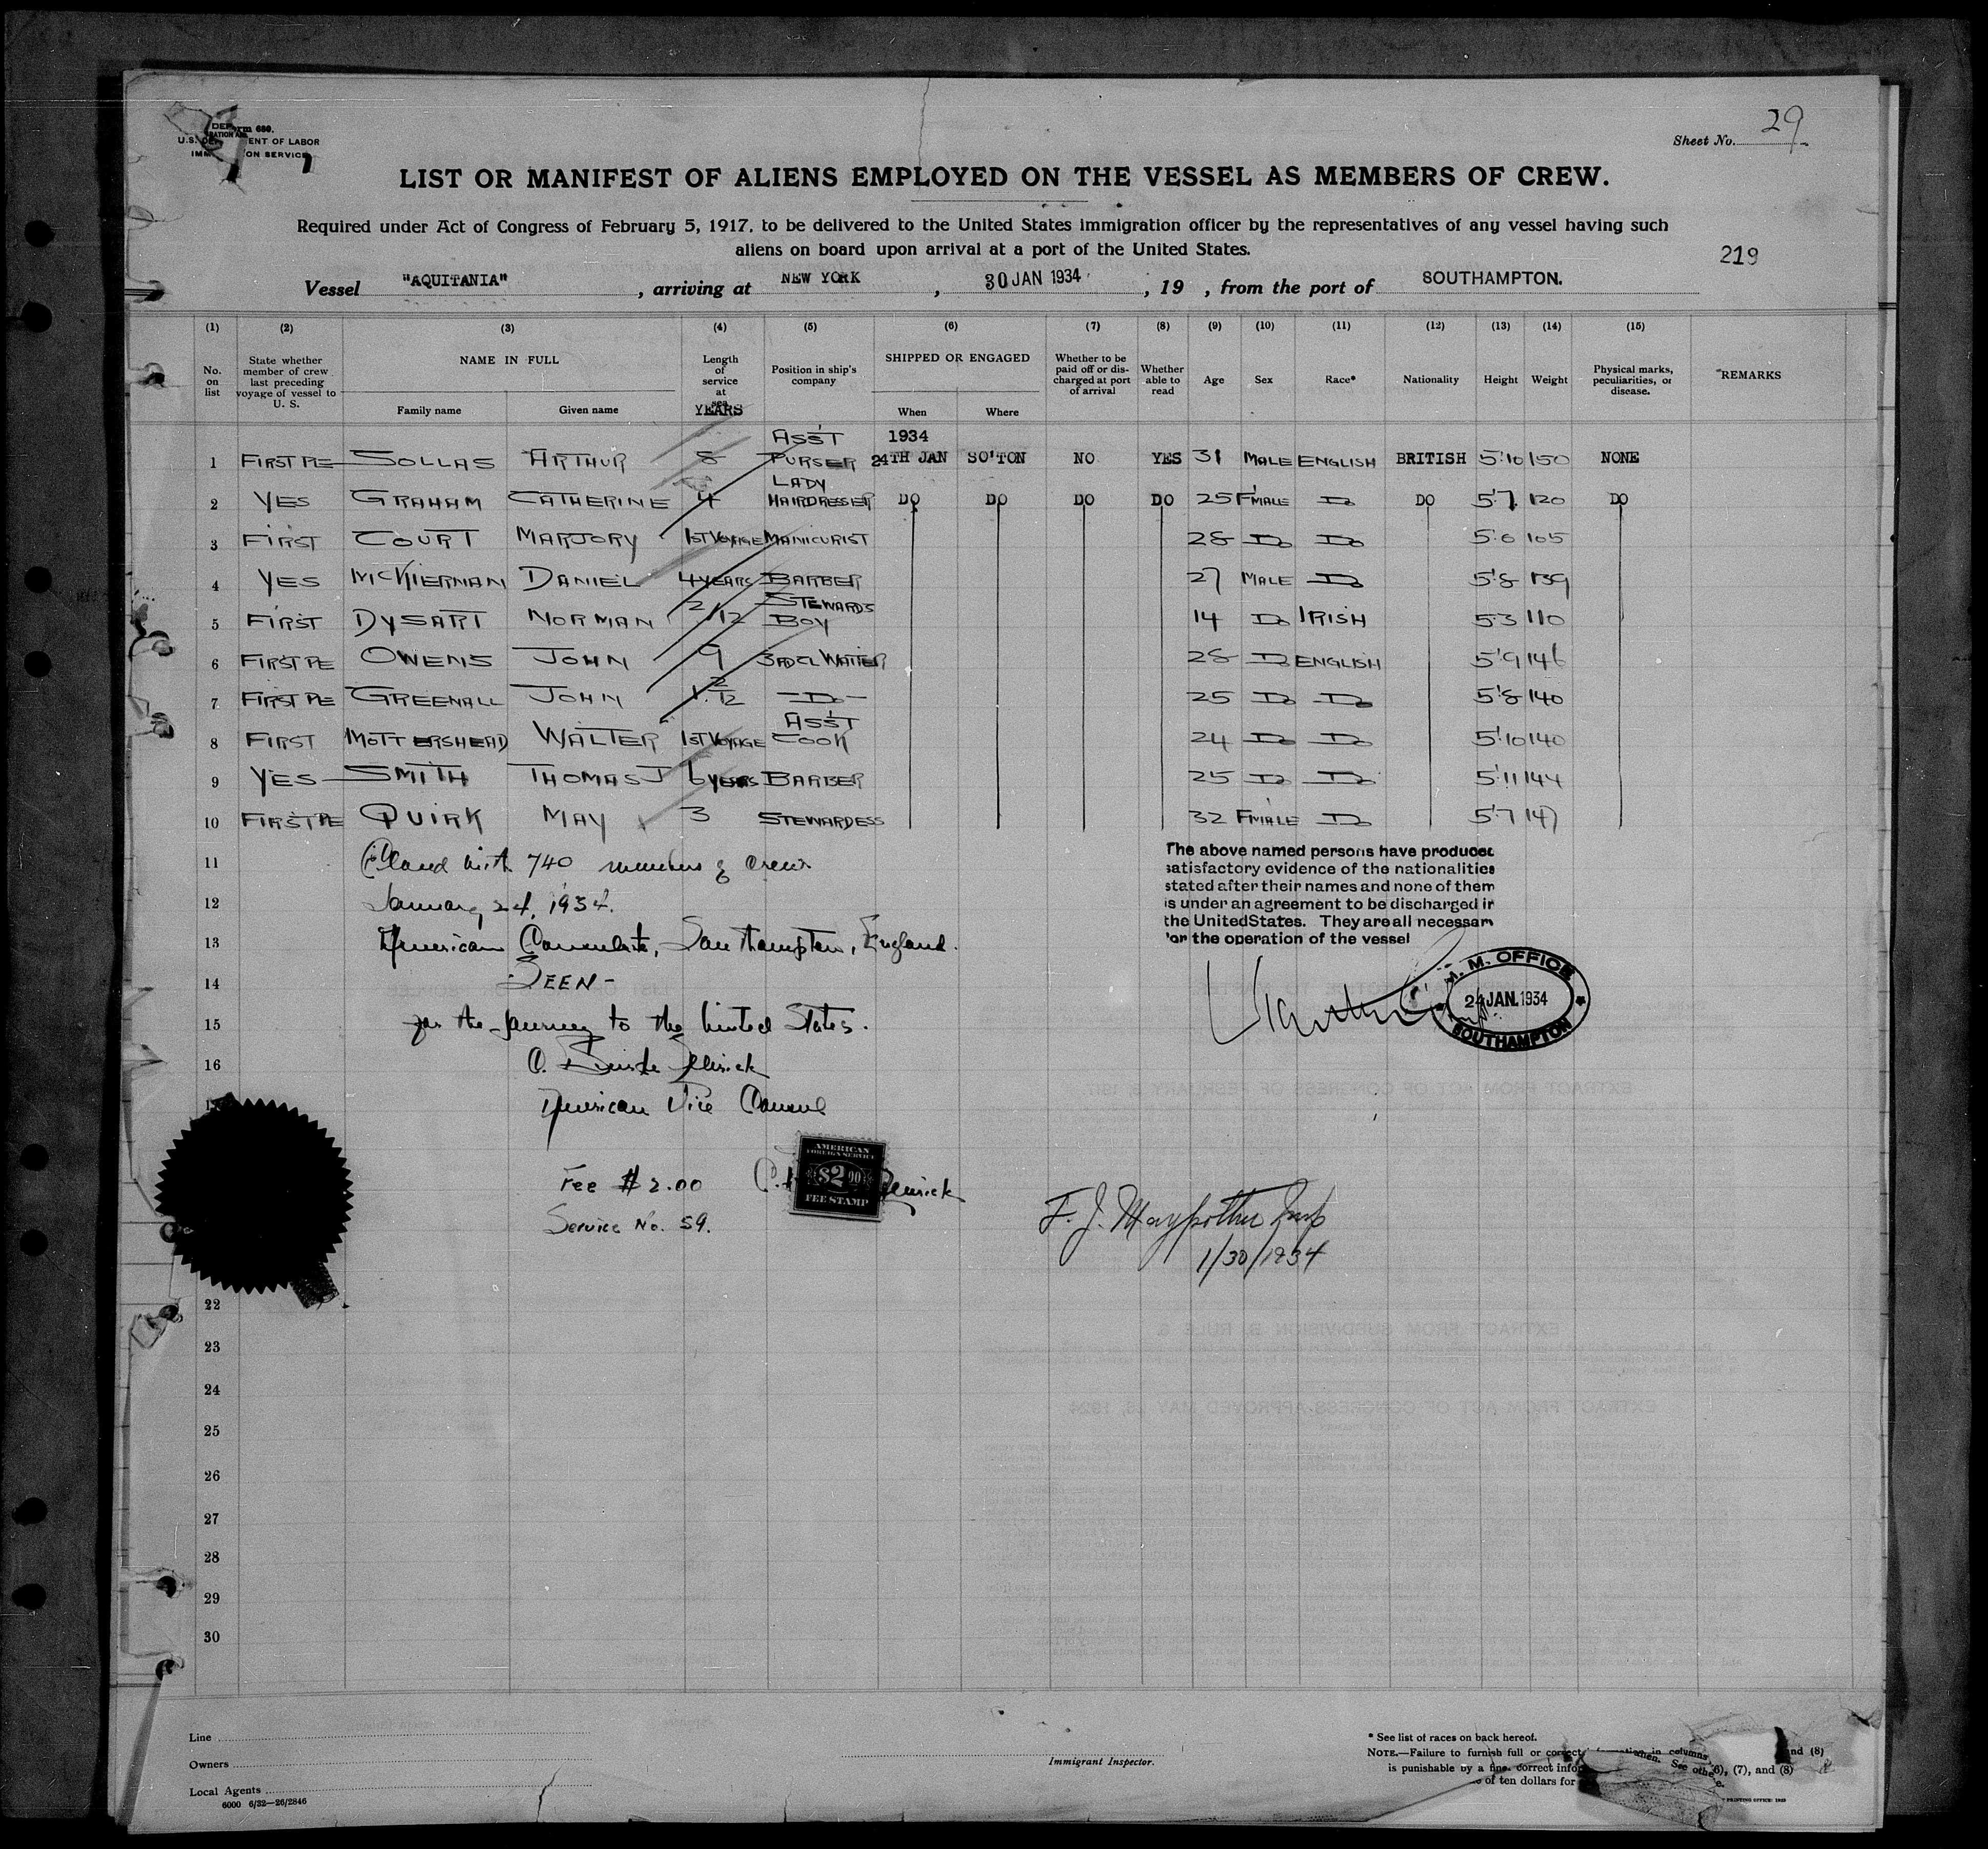 Sheet No. 29
Form 680.
U.S. DEPARTMENT OF LABOR
IMMIGRATION SERVICE
LIST OR MANIFEST OF ALIENS EMPLOYED ON THE VESSEL AS MEMBERS OF CREW.
Required under Act of Congress of February 5, 1917, to be delivered to the United States immigration officer by the representatives of any vessel having such
aliens on board upon arrival at a port of the United States.
219
Vessel "AQUITANIA", arriving at NEW YORK, 30 JAN 1934, 19 , from the port of SOUTHAMPTON.
(1) (2) (3) (4) (5) (6) (7) (8) (9) (10) (11) (12) (13) (14) (15)
No. on list
State whether member of crew last preceding voyage of vessel to U. S.
NAME IN FULL
Family name Given name
Length of service at sea YEARS
Position in ship's company
SHIPPED OR ENGAGED
When Where
Whether to be paid off or discharged at port of arrival
Whether able to read
Age Sex Race* Nationality Height Weight
Physical marks, peculiarities, or disease.
REMARKS
1 FIRST PE SOLLAS ARTHUR 8 ASS'T PURSER 1934 24TH JAN SO'TON NO YES 31 MALE ENGLISH BRITISH 5'10 150 NONE
2 YES GRAHAM CATHERINE 4 LADY HAIRDRESSER DO DO DO DO 25 F'MALE Do DO 5'7 120 DO
3 FIRST COURT MARJORY 1ST VOYAGE MANICURIST 28 Do Do 5'6 105
4 YES McKIERNAN DANIEL 4 YEARS BARBER 27 MALE Do 5'8 139
5 FIRST DYSART NORMAN 2/12 STEWARDS BOY 14 Do IRISH 5'3 110
6 FIRST PE OWENS JOHN 9 3RD CL WAITER 28 Do ENGLISH 5'9 146
7 FIRST PE GREENALL JOHN 1 2/12 —Do— 25 Do Do 5'8 140
8 FIRST MOTTERSHEAD WALTER 1ST VOYAGE ASS'T COOK 24 Do Do 5'10 140
9 YES SMITH THOMAS J 6 YEARS BARBER 25 Do Do 5'11 144
10 FIRST PE QUIRK MAY 3 STEWARDESS 32 F'MALE Do 5'7 147
11 Closed with 740 members of crew
12 January 24, 1934.
13 American Consulate, Southampton, England.
14 SEEN -
15 for the journey to the United States.
16 C.
American Vice Consul
The above named persons have produced
satisfactory evidence of the nationalities
stated after their names and none of them
is under an agreement to be discharged in
the United States. They are all necessary
for the operation of the vessel
M. M. OFFICE
24 JAN. 1934
SOUTHAMPTON
Fee $ 2.00
Service No. 59.
AMERICAN
FOREIGN SERVICE
$2.00
FEE STAMP
F. J. Maypother Insp
1/30/1934
22
23
24
25
26
27
28
29
30
Line
Owners
Local Agents
6000 6/32—26/2846
Immigrant Inspector.
* See list of races on back hereof.
NOTE.—Failure to furnish full or correct information in columns and (8)
is punishable by a fine. correct (6), (7), and (8)
of ten dollars for